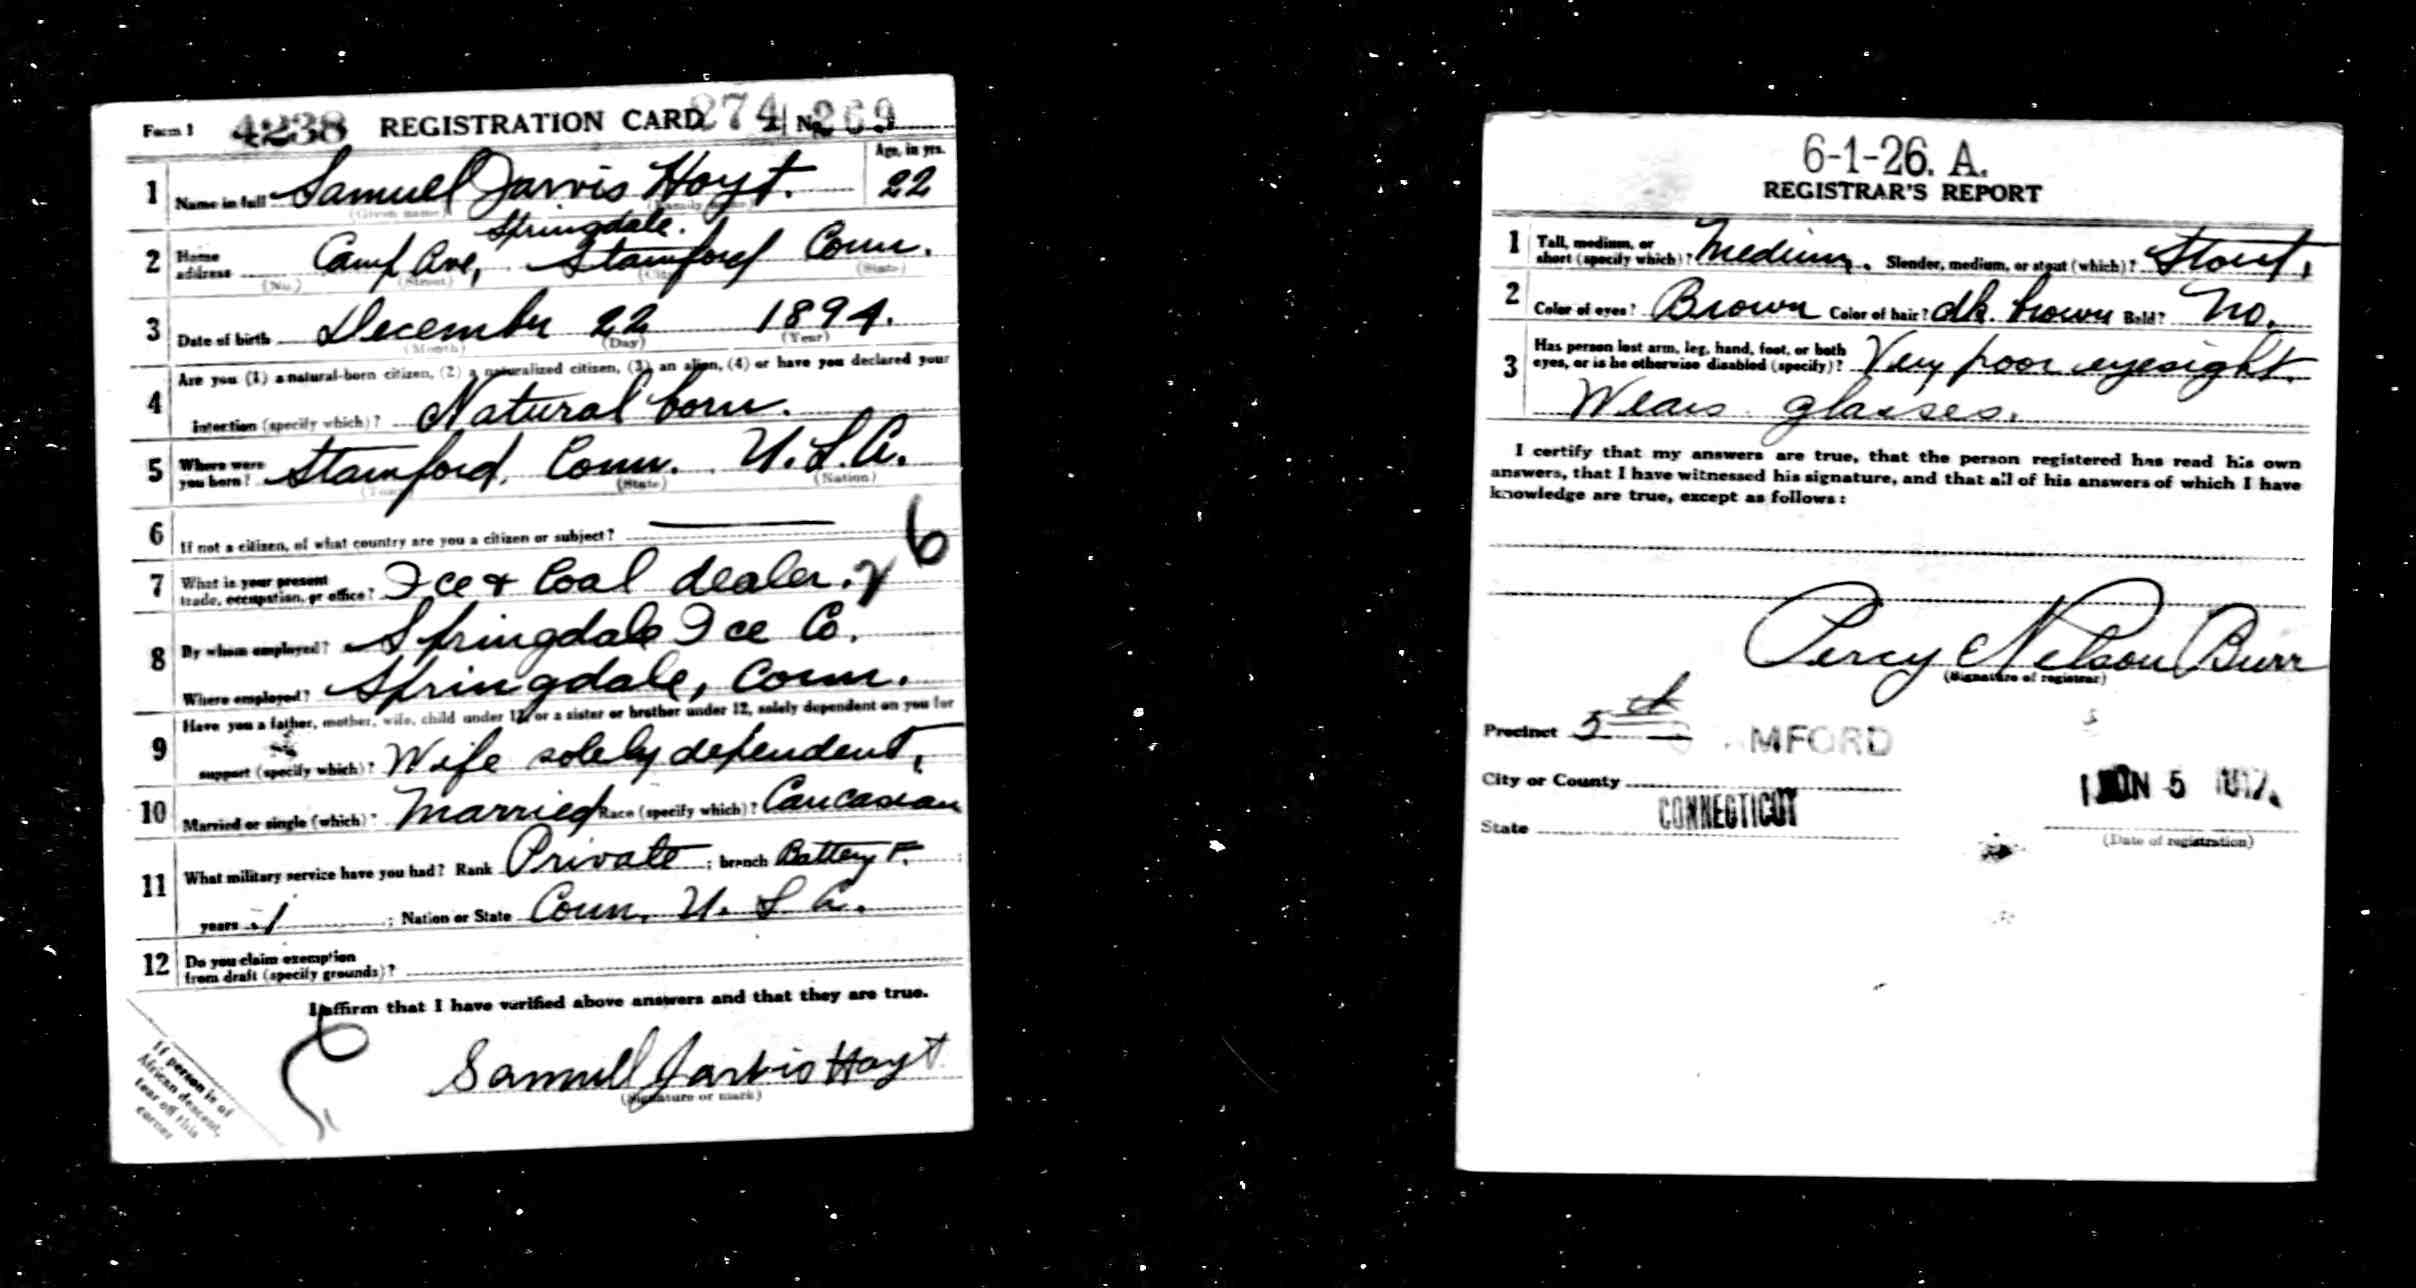 Form 1 4238 REGISTRATION CARD 274 No. 269
Age, in yrs.
1 Name in full Samuel Jarvis Hoyt. 22
(Given name) (Family name)
Springdale.
2 Home address Camp Ave, Stamford Conn.
(No.) (Street) (City) (State)
3 Date of birth December 22 1894.
(Month) (Day) (Year)
Are you (1) a natural-born citizen, (2) a naturalized citizen, (3) an alien, (4) or have you declared your
4 intention (specify which)? Natural born.
5 Where were you born? Stamford, Conn. U.S.A.
(Town) (State) (Nation)
6 If not a citizen, of what country are you a citizen or subject?
6
7 What is your present trade, occupation, or office? Ice & Coal dealer.
8 By whom employed? Springdale Ice Co.
Where employed? Springdale, Conn.
Have you a father, mother, wife, child under 12, or a sister or brother under 12, solely dependent on you for
9 support (specify which)? Wife solely dependent,
10 Married or single (which)? Married Race (specify which)? Caucasian
11 What military service have you had? Rank Private ; branch Battery F. ;
years 1 ; Nation or State Conn. U. S. A.
12 Do you claim exemption
from draft (specify grounds)?
I affirm that I have verified above answers and that they are true.
Samuel Jarvis Hoyt
(Signature or mark)
If person is of
African descent,
tear off this
corner
6-1-26. A.
REGISTRAR'S REPORT
1 Tall, medium, or short (specify which)? Medium. Slender, medium, or stout (which)? Stout.
2 Color of eyes? Brown Color of hair? dk. brown Bald? No.
Has person lost arm, leg, hand, foot, or both
3 eyes, or is he otherwise disabled (specify)? Very poor eyesight.
Wears glasses.
I certify that my answers are true, that the person registered has read his own
answers, that I have witnessed his signature, and that all of his answers of which I have
knowledge are true, except as follows:
Percy Nelson Burr
(Signature of registrar)
Precinct 5th
MFORD
City or County
JUN 5 1917
State CONNECTICUT
(Date of registration)